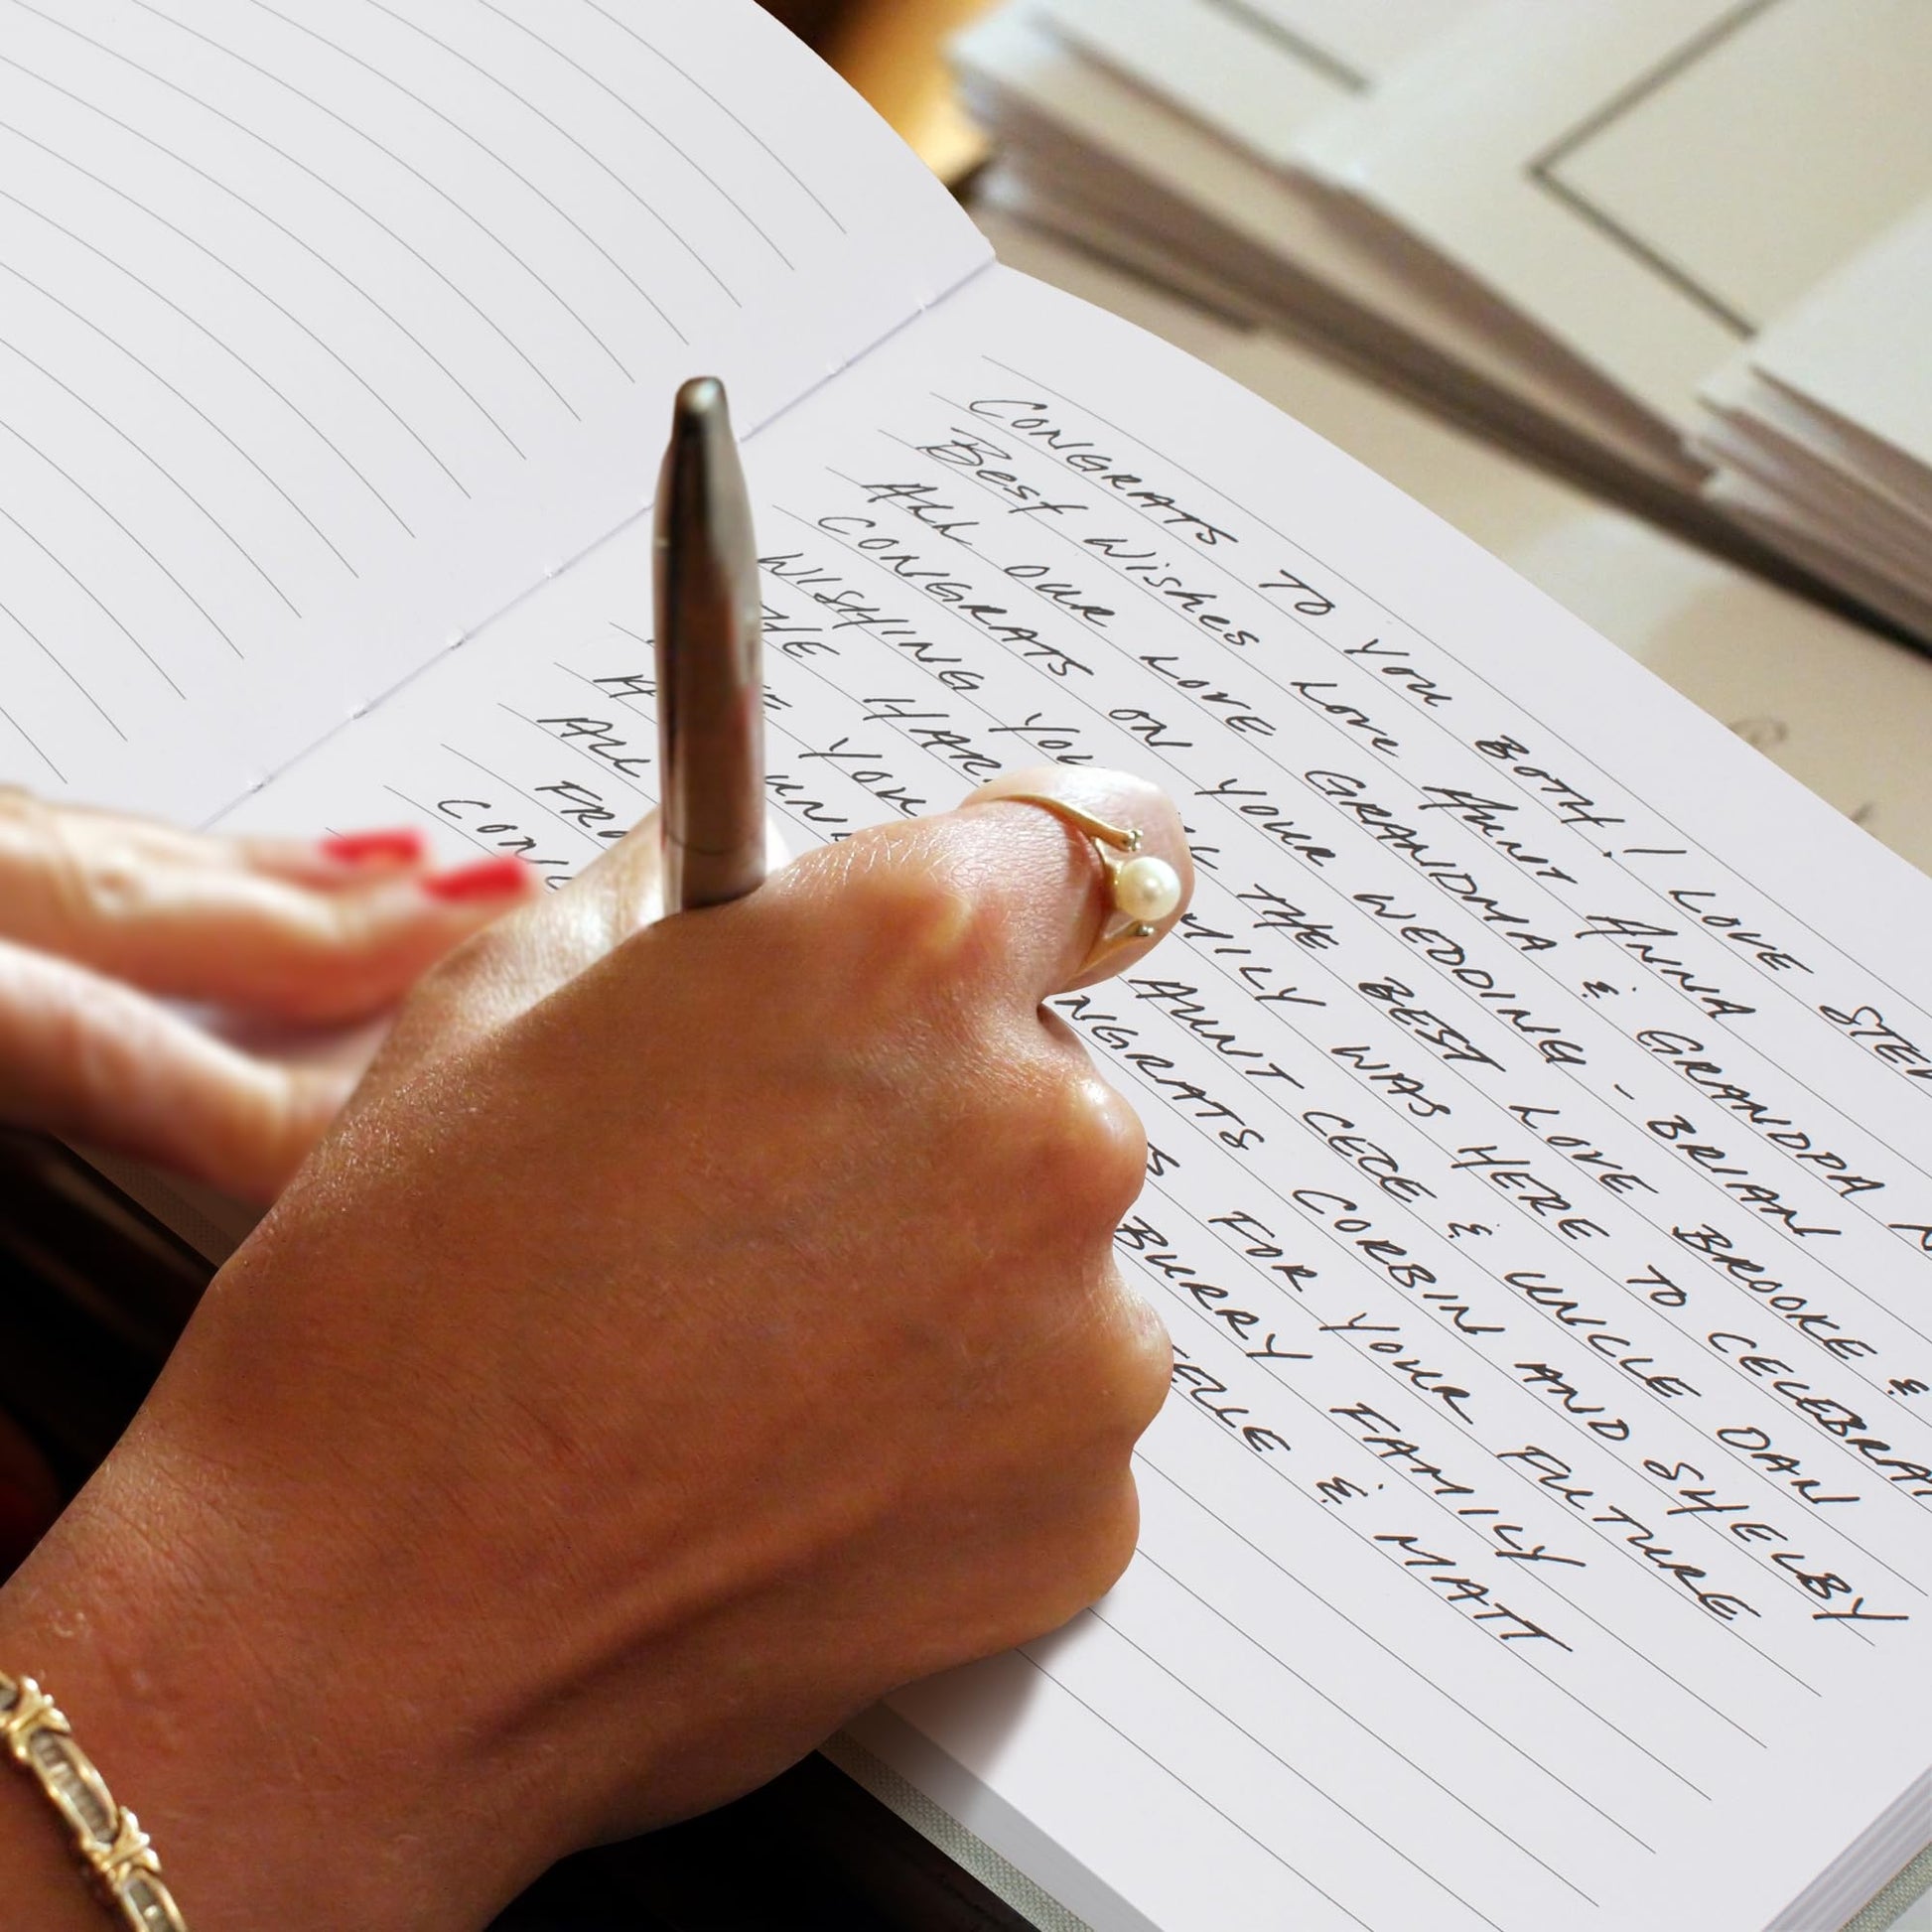 CONGRATS TO YOU BOTH! LOVE
Best wishes Love AUNT ANNA
ALL OUR LOVE GRANDMA & GRANDPA
CONGRATS ON YOUR WEDDING - BRIAN
WISHING YOU THE BEST LOVE BROOKE &
THE WAS HERE TO
YOU AUNT CECE & UNCLE DAN
CORBIN AND SHELBY
ALL FOR YOUR FUTURE
FAMILY
& MATT